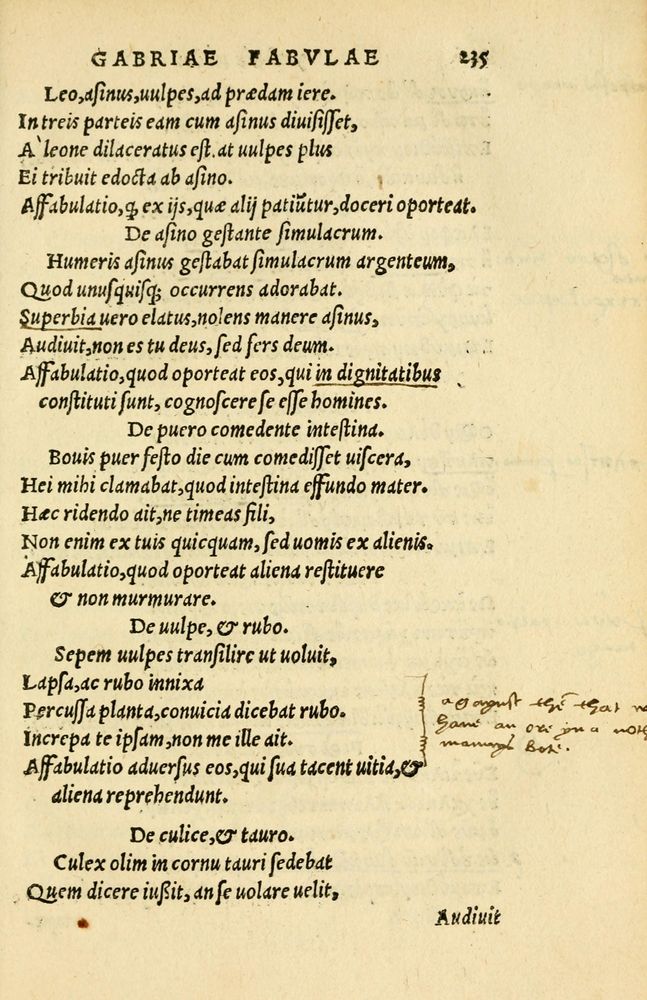 GABRIAE FABVLAE 235
Leo, aſinus, uulpes, ad prædam iere.
In treis parteis eam cum aſinus diuiſiſſet,
A` leone dilaceratus eſt. at uulpes plus
Ei tribuit edocta ab aſino.
Affabulatio, ꝙ ex ijs, quæ alij patiũtur, doceri oporteat.
De aſino geſtante ſimulacrum.
Humeris aſinus geſtabat ſimulacrum argenteum,
Quod unuſquiſqꝫ occurrens adorabat.
Superbia uero elatus, nolens manere aſinus,
Audiuit, non es tu deus, ſed fers deum.
Affabulatio, quod oporteat eos, qui in dignitatibus
conſtituti ſunt, cognoſcere ſe eſſe homines.
De puero comedente inteſtina.
Bouis puer feſto die cum comediſſet uiſcera,
Hei mihi clamabat, quod inteſtina effundo mater.
Hæc ridendo ait, ne timeas fili,
Non enim ex tuis quicquam, ſed uomis ex alienis.
Affabulatio, quod oporteat aliena reſtituere
& non murmurare.
De uulpe, & rubo.
Sepem uulpes tranſilire ut uoluit,
Lapſa, ac rubo innixa
Percuſſa planta, conuicia dicebat rubo.
Increpa te ipſam, non me ille ait.
Affabulatio aduerſus eos, qui ſua tacent uitia, &
aliena reprehendunt.
agaynſt thē that
haue an ore yn a noth
mannys Bote.
De culice, & tauro.
Culex olim in cornu tauri ſedebat
Quem dicere iußit, an ſe uolare uelit,
Audiuit